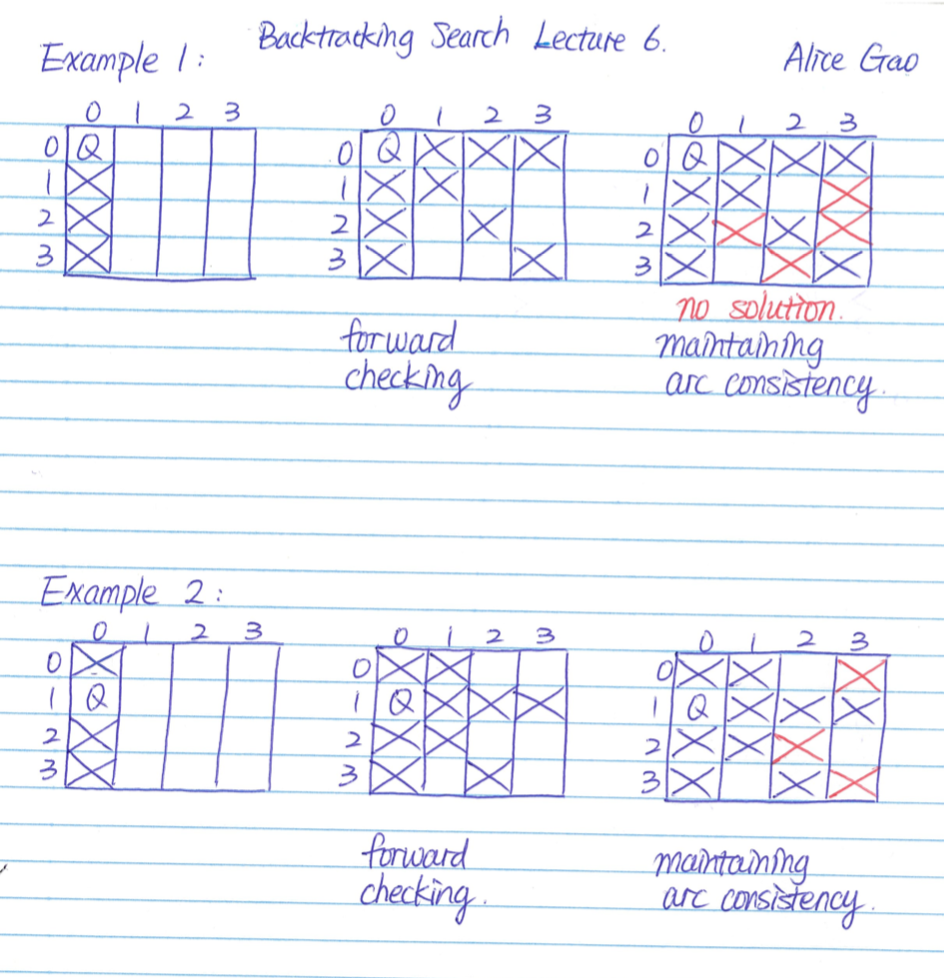 Backtracking Search Lecture 6.
Example 1:
Alice Gao
0 1 2 3
0 Q
1 X
2 X
3 X
0 1 2 3
0 Q X X X
1 X X
2 X X
3 X X
forward
checking
0 1 2 3
0 Q X X X
1 X X X
2 X X X X
3 X X X
no solution.
maintaining
arc consistency.
Example 2:
0 1 2 3
0 X
1 Q
2 X
3 X
0 1 2 3
0 X X
1 Q X X X
2 X X
3 X X
forward
checking.
0 1 2 3
0 X X X
1 Q X X X
2 X X X
3 X X X
maintaining
arc consistency.